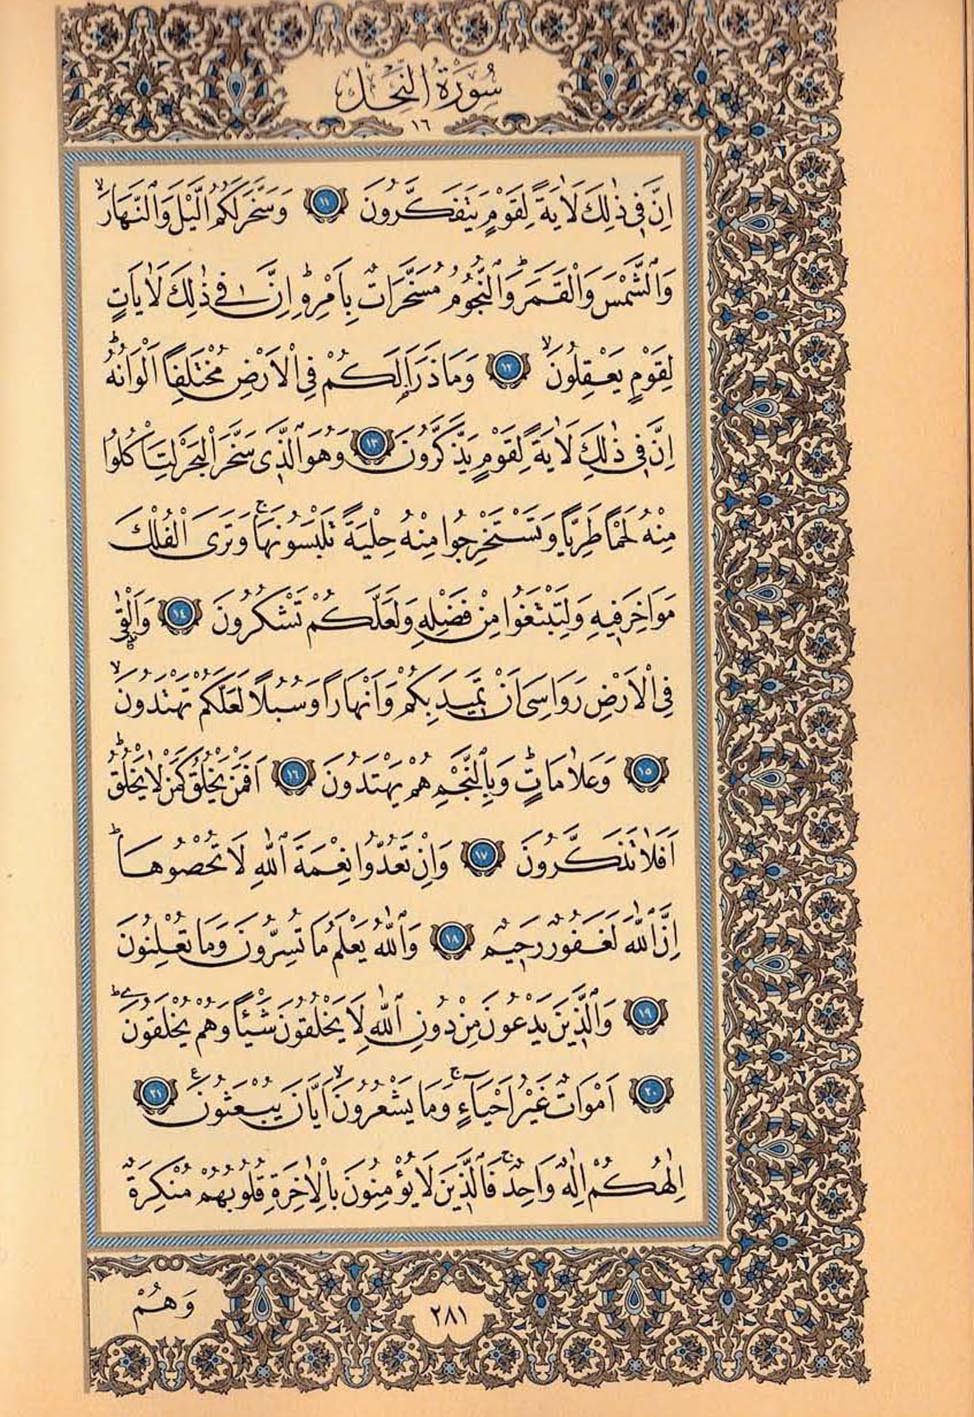 سُورَةُ النَّحْلِ
١٦
اِنَّ فٖي ذٰلِكَ لَاٰيَةً لِقَوْمٍ يَتَفَكَّرُونَ ﴿١١﴾ وَسَخَّرَ لَكُمُ الَّيْلَ وَالنَّهَارَۙ
وَالشَّمْسَ وَالْقَمَرَۜ وَالنُّجُومُ مُسَخَّرَاتٌ بِاَمْرِهٖۜ اِنَّ فٖي ذٰلِكَ لَاٰيَاتٍ
لِقَوْمٍ يَعْقِلُونَۙ ﴿١٢﴾ وَمَا ذَرَاَ لَكُمْ فِي الْاَرْضِ مُخْتَلِفًا اَلْوَانُهُۜ
اِنَّ فٖي ذٰلِكَ لَاٰيَةً لِقَوْمٍ يَذَّكَّرُونَ ﴿١٣﴾ وَهُوَ الَّذٖي سَخَّرَ الْبَحْرَ لِتَأْكُلُوا
مِنْهُ لَحْمًا طَرِيًّا وَتَسْتَخْرِجُوا مِنْهُ حِلْيَةً تَلْبَسُونَهَاۚ وَتَرَى الْفُلْكَ
مَوَاخِرَ فٖيهِ وَلِتَبْتَغُوا مِنْ فَضْلِهٖ وَلَعَلَّكُمْ تَشْكُرُونَ ﴿١٤﴾ وَاَلْقٰى
فِي الْاَرْضِ رَوَاسِيَ اَنْ تَمٖيدَ بِكُمْ وَاَنْهَارًا وَسُبُلًا لَعَلَّكُمْ تَهْتَدُونَۙ
﴿١٥﴾ وَعَلَامَاتٍۜ وَبِالنَّجْمِ هُمْ يَهْتَدُونَ ﴿١٦﴾ اَفَمَنْ يَخْلُقُ كَمَنْ لَا يَخْلُقُۜ
اَفَلَا تَذَكَّرُونَ ﴿١٧﴾ وَاِنْ تَعُدُّوا نِعْمَةَ اللّٰهِ لَا تُحْصُوهَاۜ
اِنَّ اللّٰهَ لَغَفُورٌ رَحٖيمٌ ﴿١٨﴾ وَاللّٰهُ يَعْلَمُ مَا تُسِرُّونَ وَمَا تُعْلِنُونَ
﴿١٩﴾ وَالَّذٖينَ يَدْعُونَ مِنْ دُونِ اللّٰهِ لَا يَخْلُقُونَ شَيْـًٔا وَهُمْ يُخْلَقُونَۜ
﴿٢٠﴾ اَمْوَاتٌ غَيْرُ اَحْيَٓاءٍۚ وَمَا يَشْعُرُونَۙ اَيَّانَ يُبْعَثُونَ ﴿٢١﴾
اِلٰهُكُمْ اِلٰهٌ وَاحِدٌۚ فَالَّذٖينَ لَا يُؤْمِنُونَ بِالْاٰخِرَةِ قُلُوبُهُمْ مُنْكِرَةٌ
وَهُمْ
٢٨١